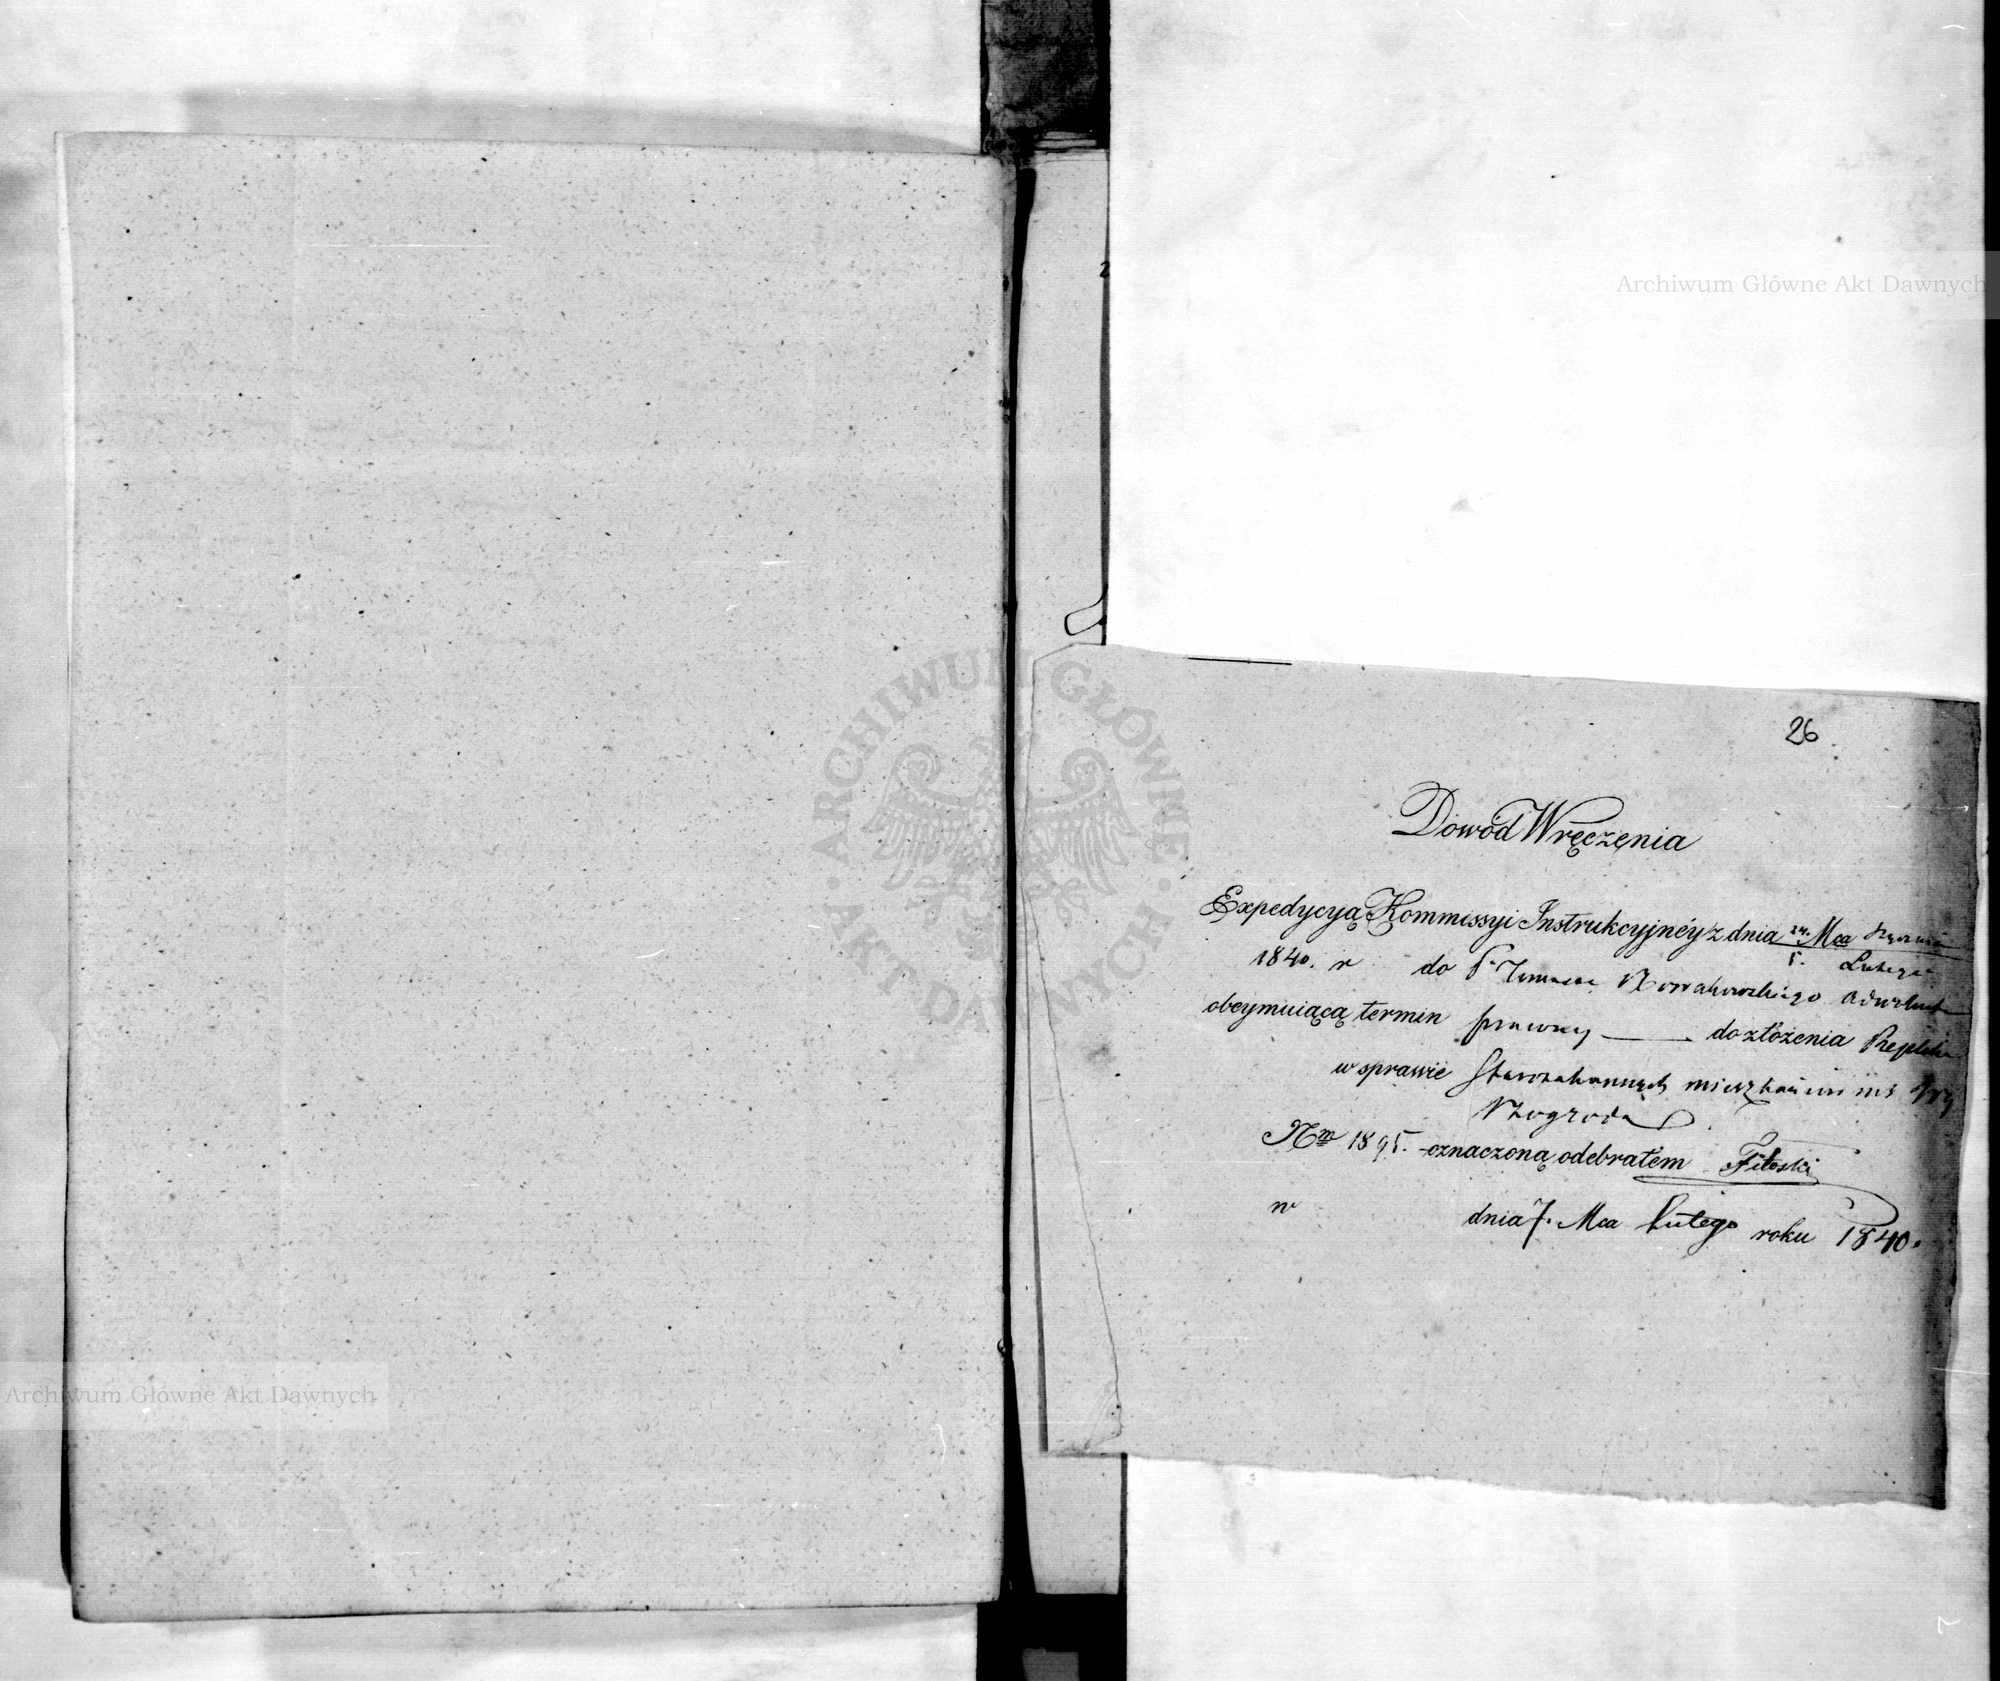 26
Dowód Wręczenia
Expedycyą Kommissyi Instrukcyjnéy z dnia 24. Mca Stycznia
5. Lutego
1840. r do P. Tomasza Nowakowskiego Adwokata
obeymuiącą termin prawny — do złożenia Repliki
w sprawie Starozakonnych mieszkańców
Nrm 1895. oznaczoną odebrałem
w dnia 7. Mca Lutego roku 1840.
Archiwum Główne Akt Dawnych
Archiwum Główne Akt Dawnych
ARCHIWUM GŁÓWNE AKT DAWNYCH